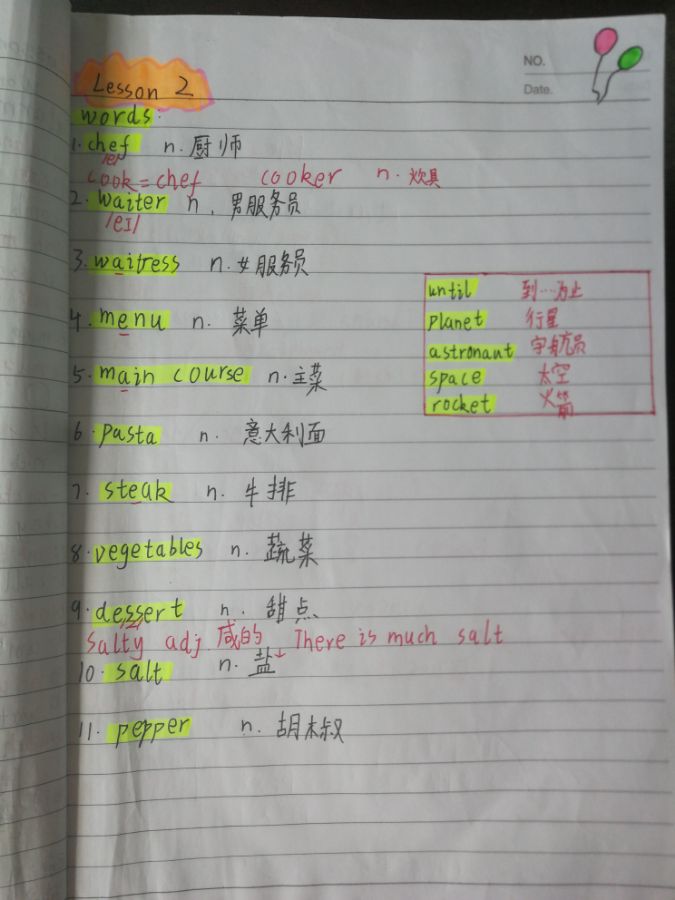 NO.
Date.
Lesson 2
words:
1. chef n. 厨师
/e/
cook = chef cooker n. 炊具
2. waiter n. 男服务员
/eɪ/
3. waitress n. 女服务员
4. menu n. 菜单
5. main course n. 主菜
6. pasta n. 意大利面
7. steak n. 牛排
8. vegetables n. 蔬菜
9. dessert n. 甜点
/z/
salty adj. 咸的 There is much salt
10. salt n. 盐
11. pepper n. 胡椒
until 到…为止
planet 行星
astronaut 宇航员
space 太空
rocket 火箭